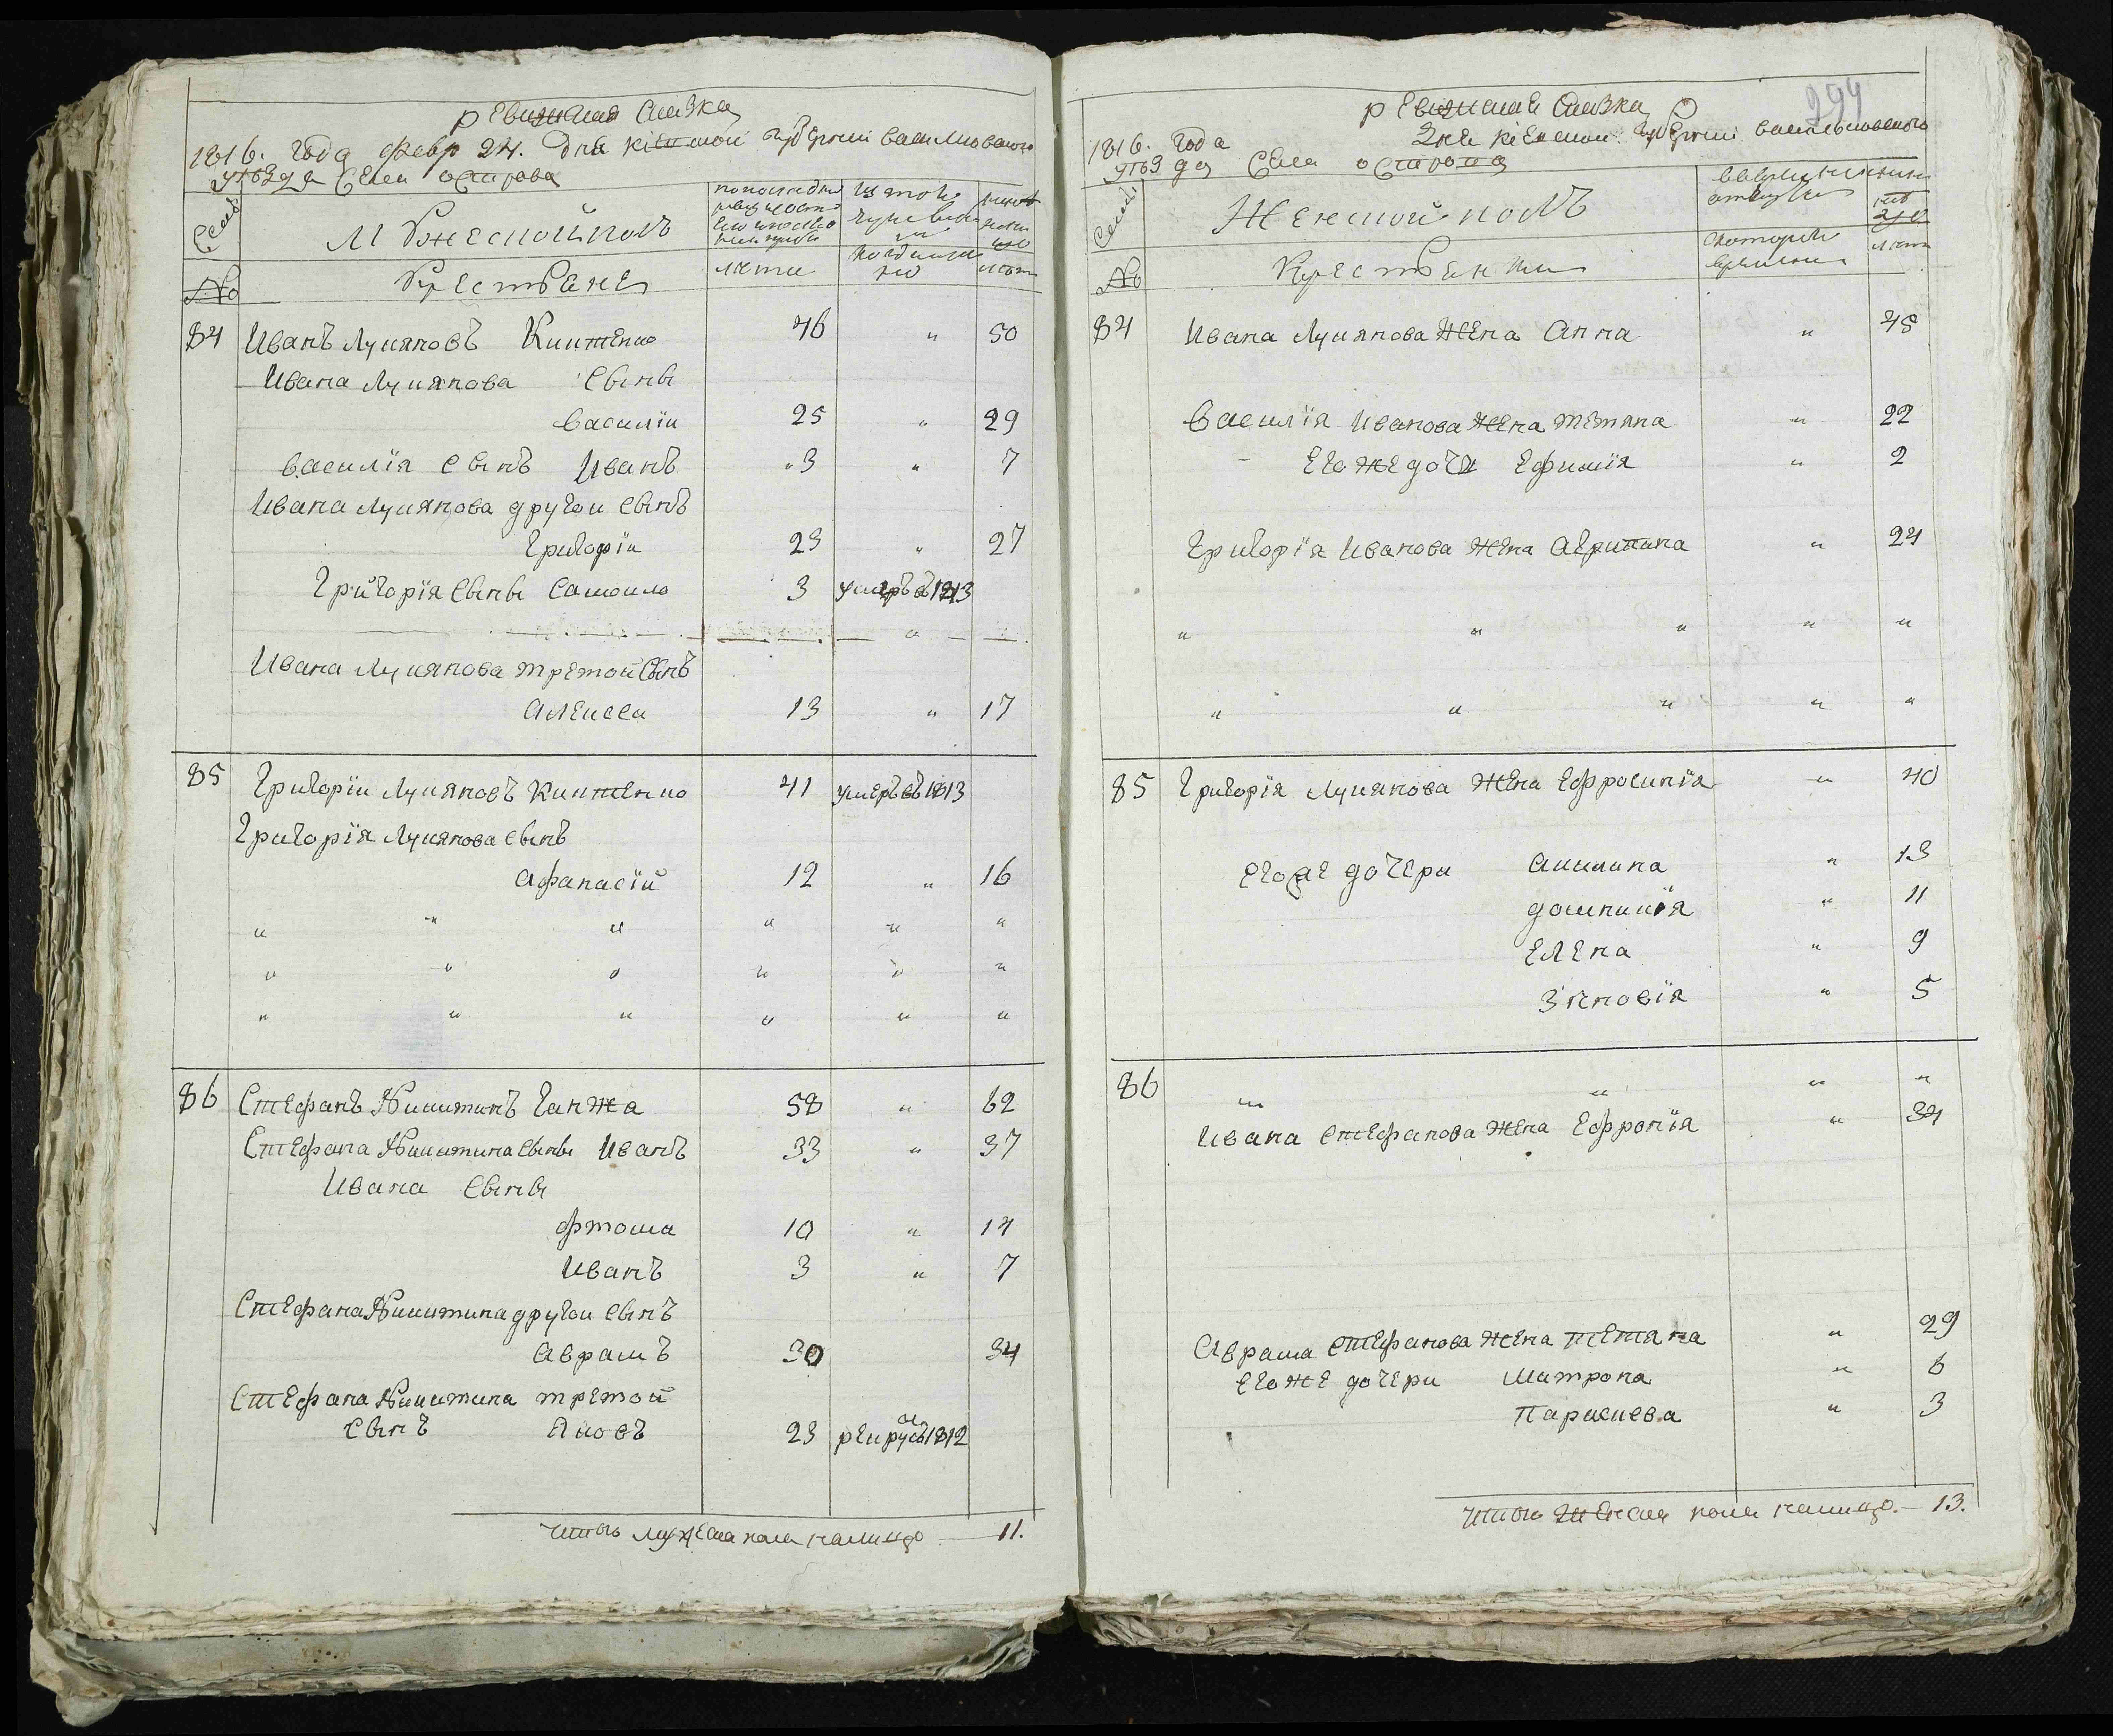 ревизская сказка
1816. года февр 24. дня кіевской губерніи васильковского
уѣзда села острова
Семьи
Мужеской полъ
по последней
ревизіи
лета
изтого числа
когда имянно
ныне
лета
№
Крестьяне
84 Иванъ Лукяновъ Кихтенко 46 " 50
Ивана Лукянова сыны
василіи 25 " 29
василія сынъ Иванъ "3 " 7
Ивана Лукянова другои сынъ
григоріи 23 " 27
григорія сыны самоило 3 умеръ въ 1813
Ивана Лукянова третои сынъ
алексеи 13 " 17
85 григоріи Лукяновъ Кихтенко 41 умеръ въ 1813
григорія Лукянова сынъ
афанасій 12 " 16
" " " " " "
" " " " " "
" " " " " "
86 Стефанъ Никитинъ ганжа 58 " 62
Стефана Никитина сыны Иванъ 33 " 37
Ивана сыны
фтома 10 " 14
Иванъ 3 " 7
Стефана Никитина другои сынъ
аврамъ 30 34
Стефана Никитина третой
сынъ Яковъ 23 рекру въ 1812
Итого мужеска пола налицо — 11.
294
ревизская сказка
1816. года дня кіевской губерніи васильковского
уѣзда села острова
Семьи
Женской полъ
вовременной
отлучке
с которого
времени
ныне
лета
№
Крестьянки
84 Ивана Лукянова жена анна " 45
василія Иванова жена тетяна " 22
его же дочь ефимія " 2
григорія Иванова жена агрипина " 24
" " " " "
" " " " "
85 григорія Лукянова жена ефросинія " 40
его же дочери акилина " 13
домникія " 11
елена " 9
зѣновія " 5
86 " " " "
Ивана Стефанова жена ефронія " 34
аврама стефанова жена тетяна " 29
его же дочери матрона " 6
параскева " 3
Итого женска пола налицо. — 13.